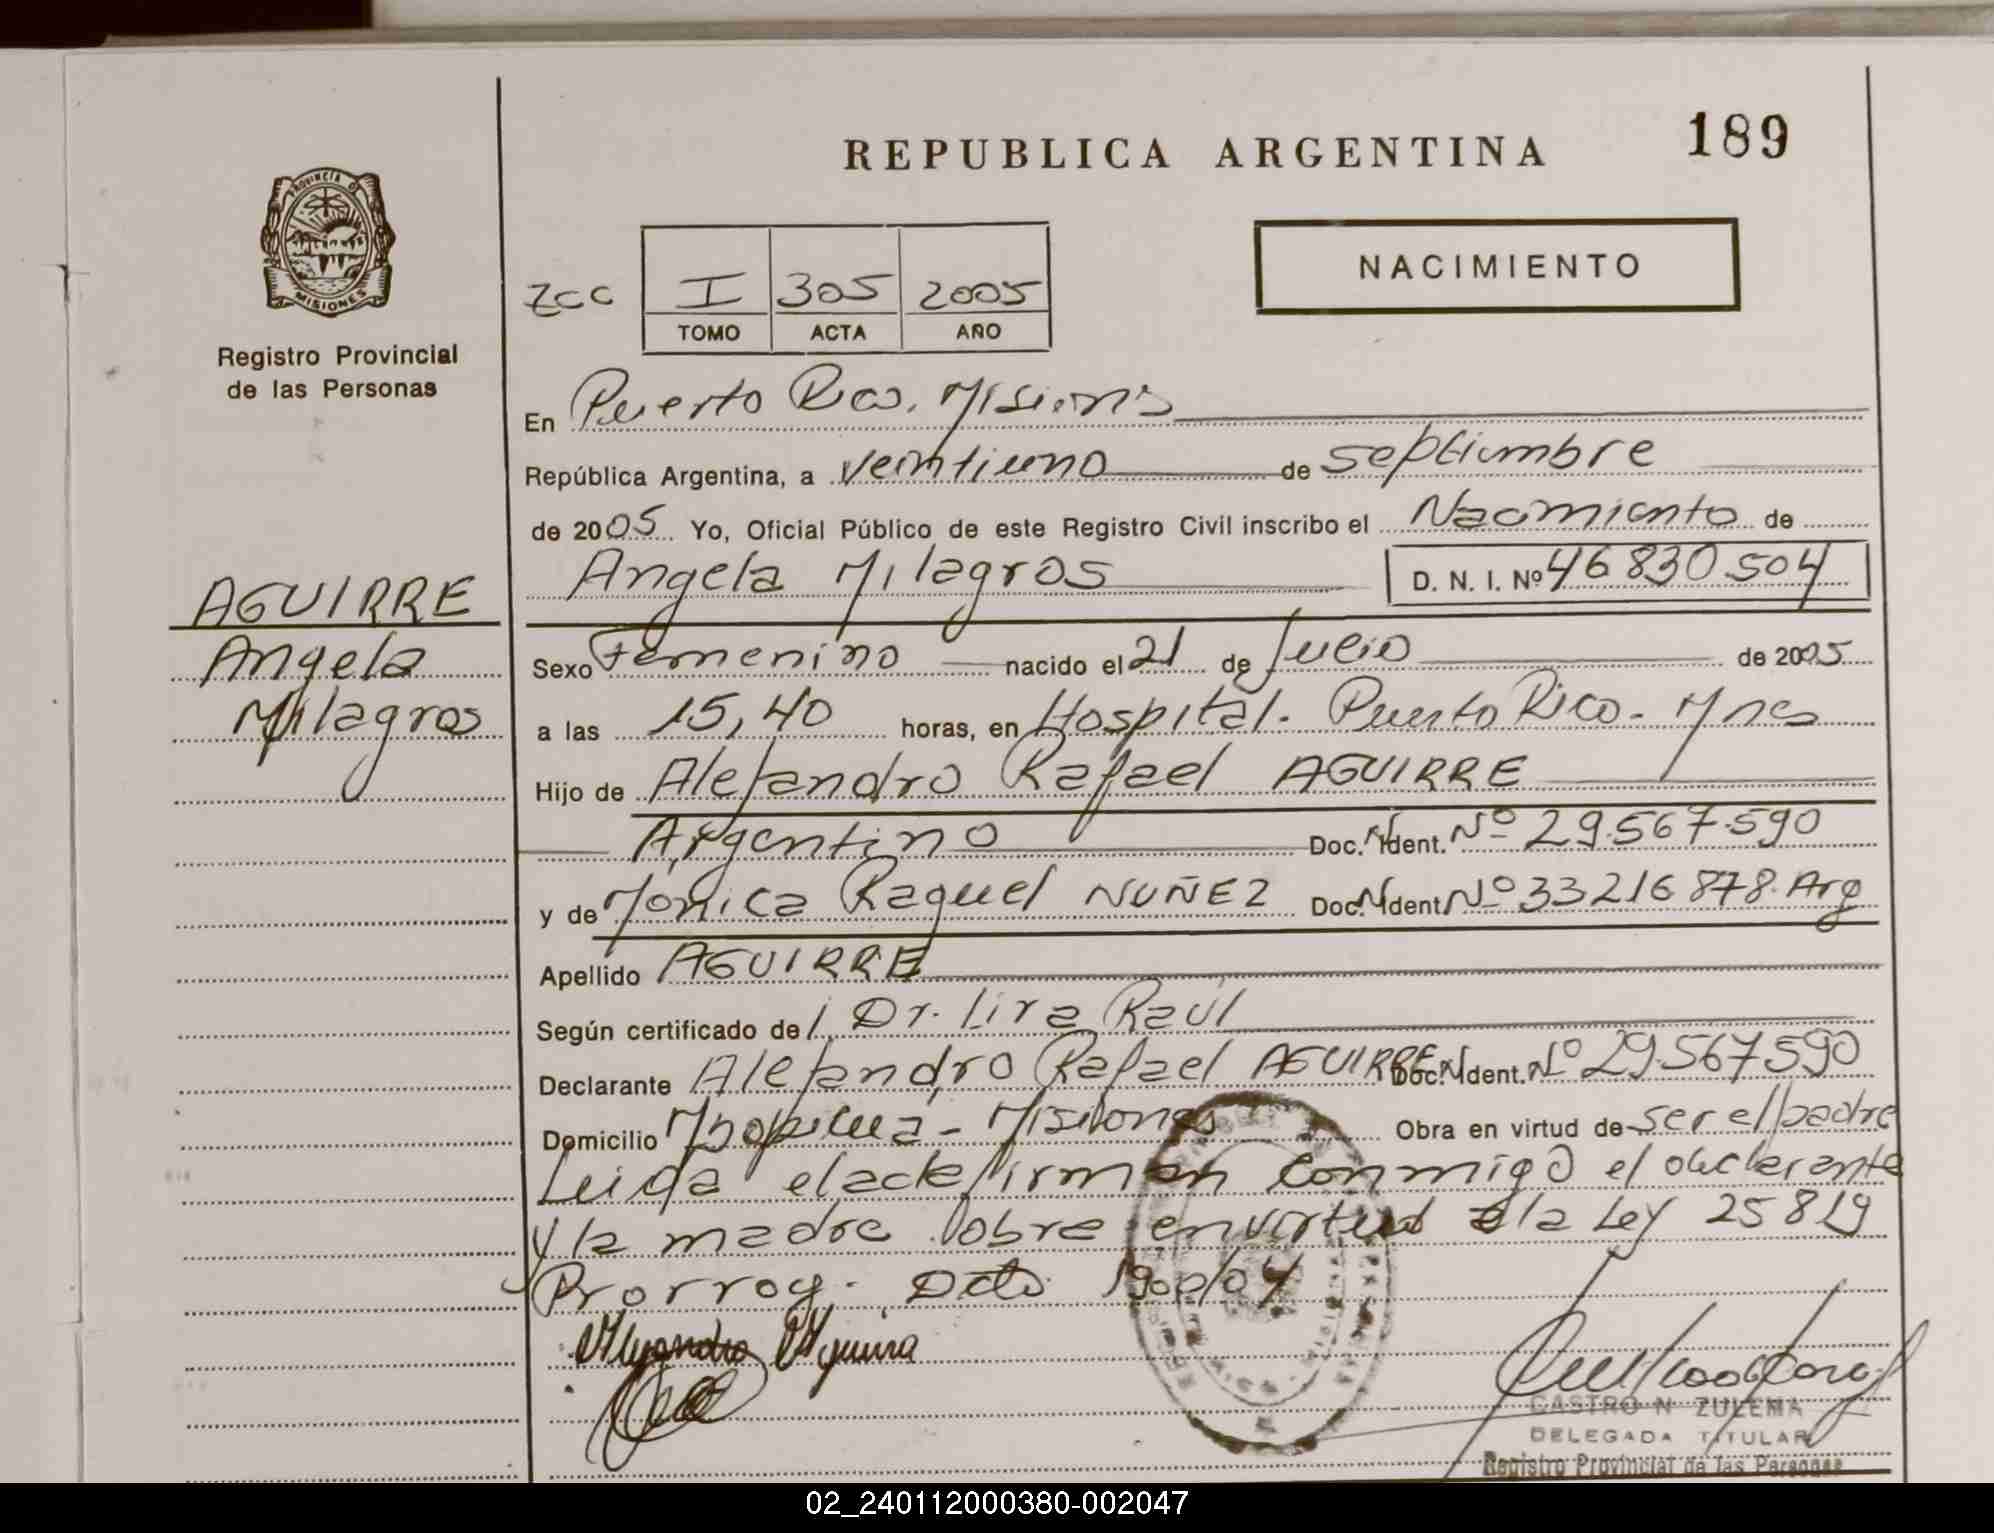 REPUBLICA ARGENTINA
189
PROVINCIA DE
MISIONES
Registro Provincial
de las Personas
NACIMIENTO
zcc I 305 2005
TOMO ACTA AÑO
En Puerto Rico. Misiones
República Argentina, a veintiuno de septiembre
de 2005 Yo, Oficial Público de este Registro Civil inscribo el Nacimiento de
Angela Milagros D. N. I. Nº 46830504
AGUIRRE
Angela
Milagros
Sexo Femenino nacido el 21 de Julio de 2005
a las 15,40 horas, en Hospital. Puerto Rico - Mnes
Hijo de Alejandro Rafael AGUIRRE
Argentino Doc. N Ident. Nº 29.567.590
y de Monica Raquel NUÑEZ Doc. N Ident. Nº 33216878. Arg
Apellido AGUIRRE
Según certificado de Dr. Lira Raúl
Declarante Alejandro Rafael AGUIRRE Doc. N Ident. Nº 29.567590
Domicilio - Misiones Obra en virtud de ser el padre
Leida el acta firman conmigo el declarante
y la madre obra en virtud de la Ley 25819
Prorrog. Dcto 1900/04
Alejandro Aguirre
CASTRO N ZULEMA
DELEGADA TITULAR
Registro Provincial de las Personas
02_240112000380-002047